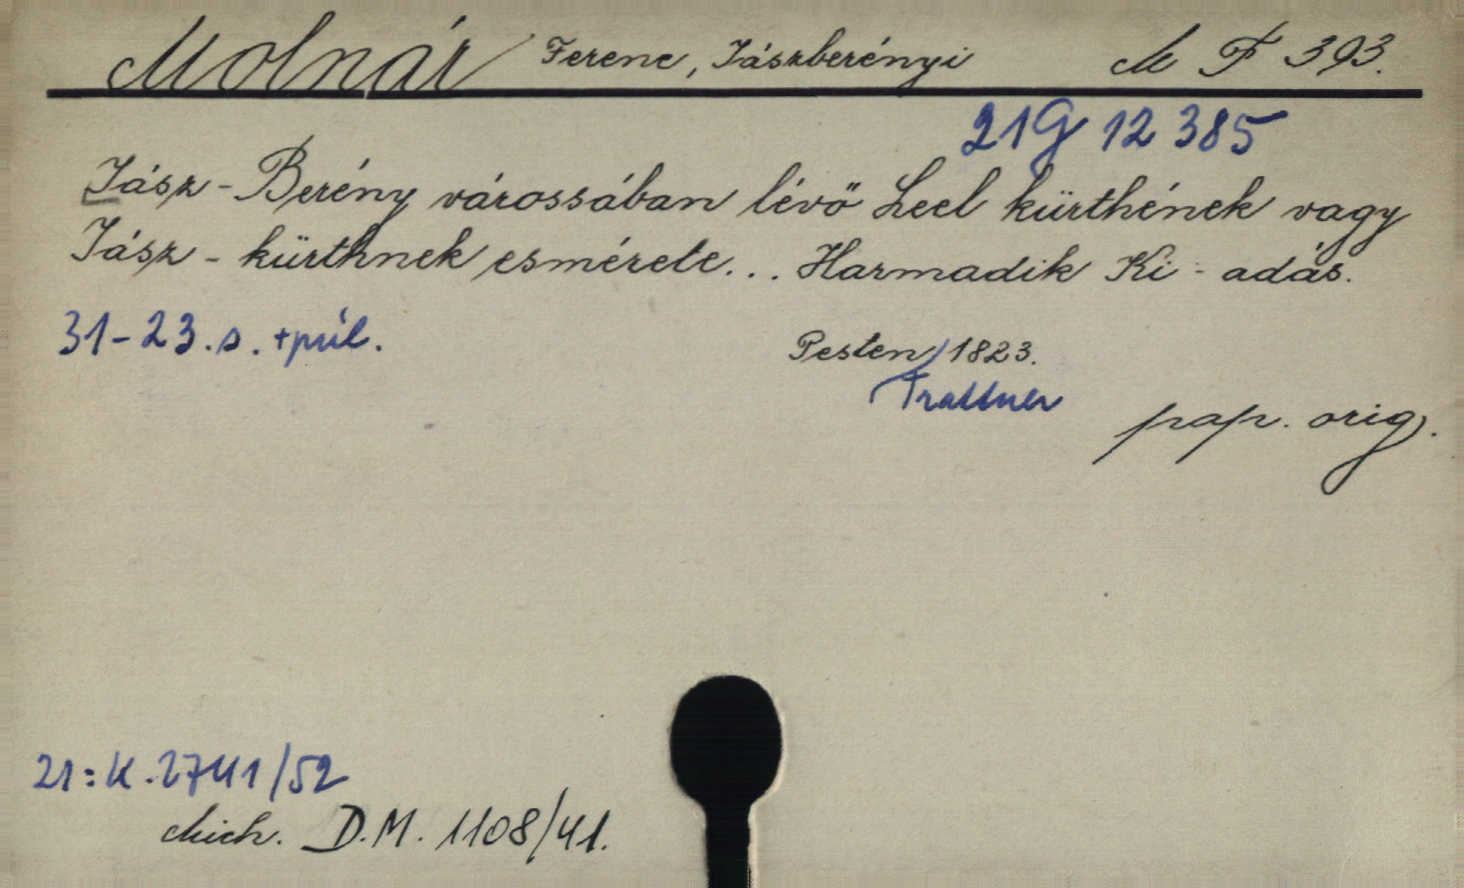 Molnár Ferenc, Jászberényi M F 393.
21g 12 385
Jász-Berény várossában lévő Leel kürthének vagy
Jász-kürthnek esmérete... Harmadik Ki-adás.
31-23.s. + púl.
Pesten, 1823.
Trattner
pap. orig.
21:K.2741/52
Mich. D.M. 1108/41.